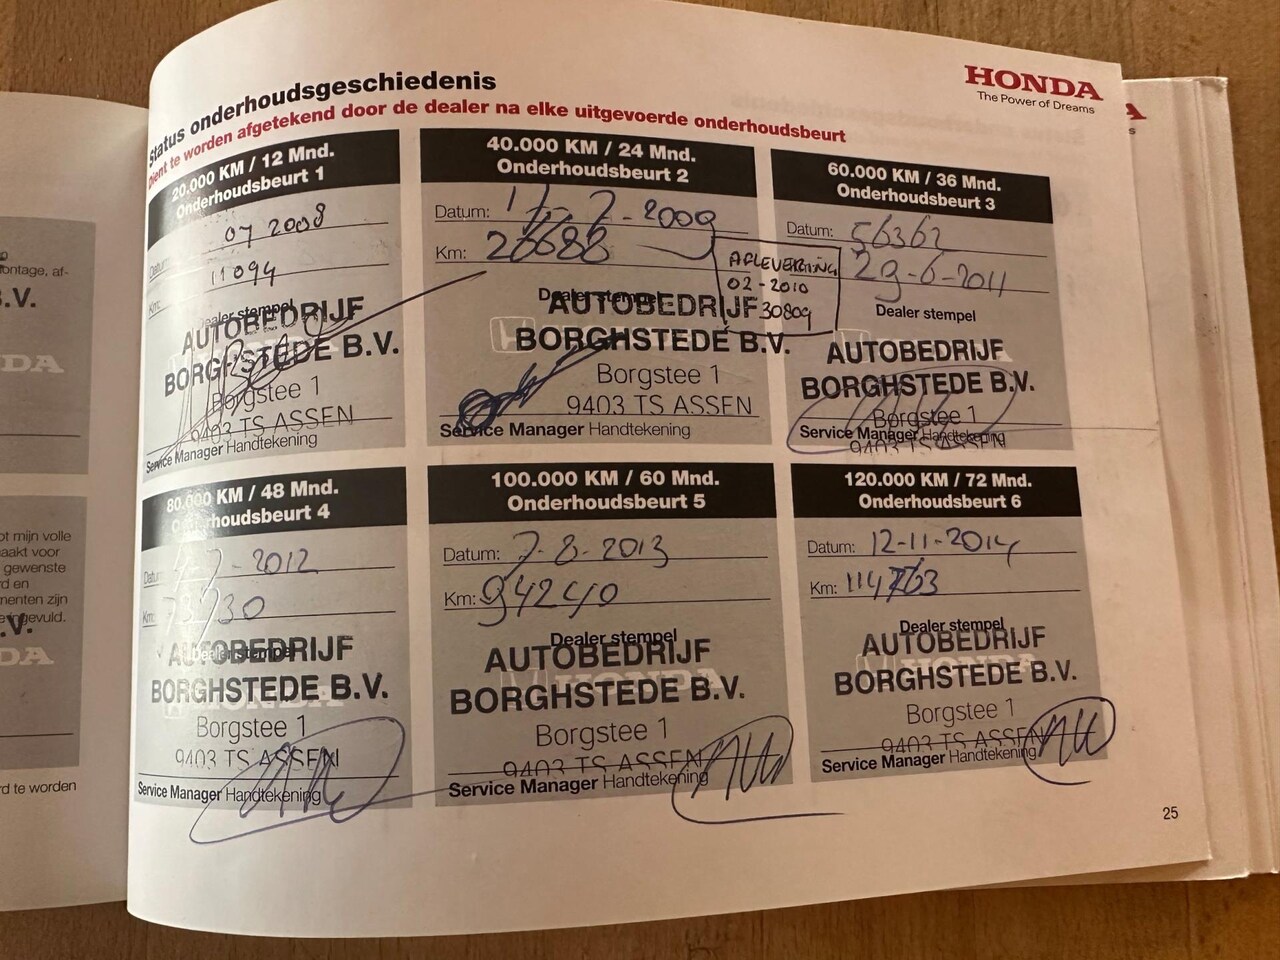 HONDA
The Power of Dreams
Status onderhoudsgeschiedenis
Dient te worden afgetekend door de dealer na elke uitgevoerde onderhoudsbeurt
20.000 KM / 12 Mnd.
Onderhoudsbeurt 1
07 2008
Km: 11094
Dealer stempel
AUTOBEDRIJF
BORGHSTEDE B.V.
Borgstee 1
9403 TS ASSEN
Service Manager Handtekening
40.000 KM / 24 Mnd.
Onderhoudsbeurt 2
Datum: 2009
Km: 26688
AFLEVERING
02-2010
30809
Dealer stempel
AUTOBEDRIJF
BORGHSTEDE B.V.
Borgstee 1
9403 TS ASSEN
Service Manager Handtekening
60.000 KM / 36 Mnd.
Onderhoudsbeurt 3
Datum: 56362
29-6-2011
Dealer stempel
AUTOBEDRIJF
BORGHSTEDE B.V.
Borgstee 1
9403 TS ASSEN
Service Manager Handtekening
80.000 KM / 48 Mnd.
Onderhoudsbeurt 4
Datum: 2012
Km:
Dealer stempel
AUTOBEDRIJF
BORGHSTEDE B.V.
Borgstee 1
9403 TS ASSEN
Service Manager Handtekening
100.000 KM / 60 Mnd.
Onderhoudsbeurt 5
Datum: 7-8-2013
Km: 94240
Dealer stempel
AUTOBEDRIJF
BORGHSTEDE B.V.
Borgstee 1
9403 TS ASSEN
Service Manager Handtekening
120.000 KM / 72 Mnd.
Onderhoudsbeurt 6
Datum: 12-11-2014
Km: 114763
Dealer stempel
AUTOBEDRIJF
BORGHSTEDE B.V.
Borgstee 1
9403 TS ASSEN
Service Manager Handtekening
25